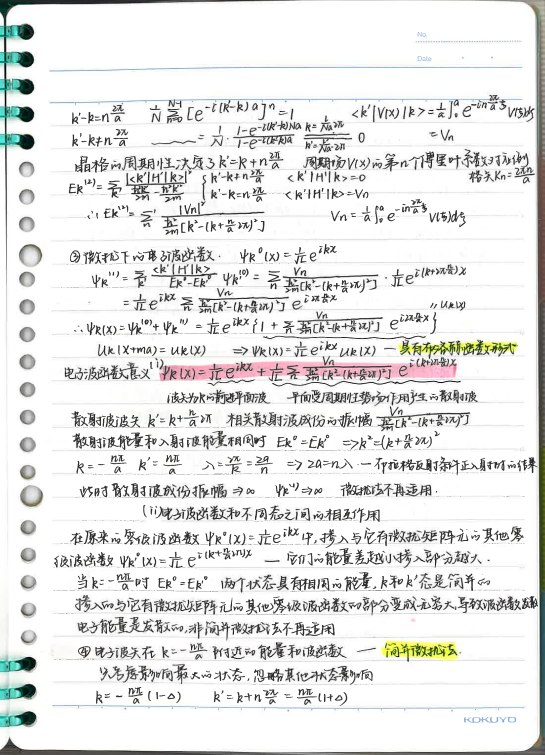 No.
Date
k'-k=n 2π/a   1/N Σ_{n=0}^{N-1} [e^{-i(k'-k)a}]^n = 1   <k'|V(x)|k> = 1/a ∫_0^a e^{-in 2π/a ξ} V(ξ)dξ
k'-k≠n 2π/a   = 1/N · (1-e^{-i(k'-k)Na})/(1-e^{-i(k'-k)a})   0   = Vn
晶格的周期性决定了 k'=k+n 2π/a   周期场V(x)的第n个傅里叶系数对应倒
格矢 Kn = 2πn/a
Ek^(2) = Σ_{k'} |<k'|H'|k>|²/(ħ²k²/2m - ħ²k'²/2m)   { k'-k≠n 2π/a   <k'|H'|k>=0
k'-k=n 2π/a   <k'|H'|k>=Vn
∴ Ek^(2) = Σ'_n |Vn|²/(ħ²/2m [k²-(k+n/a 2π)²])   Vn = 1/a ∫_0^a e^{-in 2π/a ξ} V(ξ)dξ
③ 微扰下的电子波函数.   ψk^0(x) = 1/√L e^{ikx}
ψk^(1) = Σ'_{k'} <k'|H'|k>/(Ek^0-Ek'^0) ψk'^(0) = Σ'_n Vn/(ħ²/2m [k²-(k+n/a 2π)²]) · 1/√L e^{i(k+2πn/a)x}
= 1/√L e^{ikx} Σ'_n Vn/(ħ²/2m [k²-(k+n/a 2π)²]) e^{i2π n/a x}
∴ ψk(x) = ψk^(0) + ψk^(1) = 1/√L e^{ikx} {1+ Σ'_n Vn/(ħ²/2m [k²-(k+n/a 2π)²]) e^{i2π n/a x}}   "uk(x)
uk(x+ma) = uk(x)   ⇒ ψk(x) = 1/√L e^{ikx} uk(x) — 具有布洛赫函数形式
电子波函数意义 (i) ψk(x) = 1/√L e^{ikx} + 1/√L Σ'_n Vn/(ħ²/2m [k²-(k+n/a 2π)²]) e^{i(k+2πn/a)x}
波矢为k的前进平面波   平面受周期性势场作用产生的散射波
散射波波矢 k'=k+n/a 2π   相关散射波成份的振幅 Vn/(ħ²/2m [k²-(k+n/a 2π)²])
散射波能量和入射波能量相同时 Ek^0=Ek'^0 ⇒ k²=(k+n/a 2π)²
k=-nπ/a   k'=nπ/a   λ=2π/k=2a/n   ⇒ 2a=nλ — 布拉格反射条件正入射时的结果
此时散射波成份振幅 ⇒∞   ψk^(1) ⇒∞   微扰法不再适用.
(ii) 电子波函数和不同态之间的相互作用
在原来的零级波函数 ψk^0(x)=1/√L e^{ikx}中,掺入与它有微扰矩阵元的其他零
级波函数 ψk'^0(x)=1/√L e^{i(k+n/a 2π)x} — 它们的能量差越小掺入部分越大.
当 k=-nπ/a 时 Ek^0=Ek'^0 两个状态具有相同的能量,k和k'态是简并的
掺入的与它有微扰矩阵元的其他零级波函数的部分变成无穷大,导致波函数发散
电子能量是发散的,非简并微扰法不再适用
④ 电子波矢在 k=-nπ/a 附近的能量和波函数 — 简并微扰法.
只考虑影响最大的状态,忽略其他状态影响
k=-nπ/a (1-Δ)   k'=k+n 2π/a = nπ/a (1+Δ)
KOKUYO